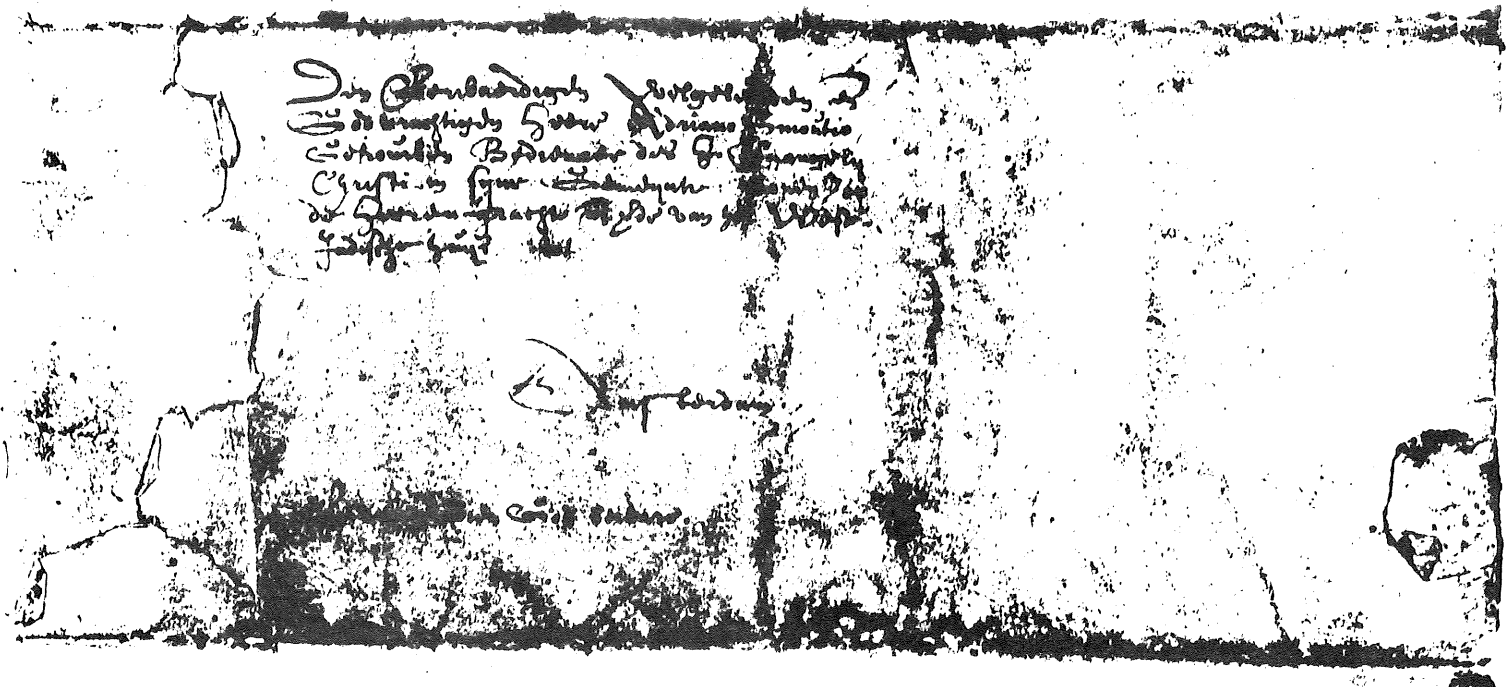 Den Eerwaerdigen Welgeleerden en
Godvruchtigen Heere Adriano Smoutio
Getrouwen Bedienaer des H. Evangely
Christi in syne Gemeynte woonende op
de Heeren gracht verde van het West
Indische huys tot
Amsterdam
Godt geleide.